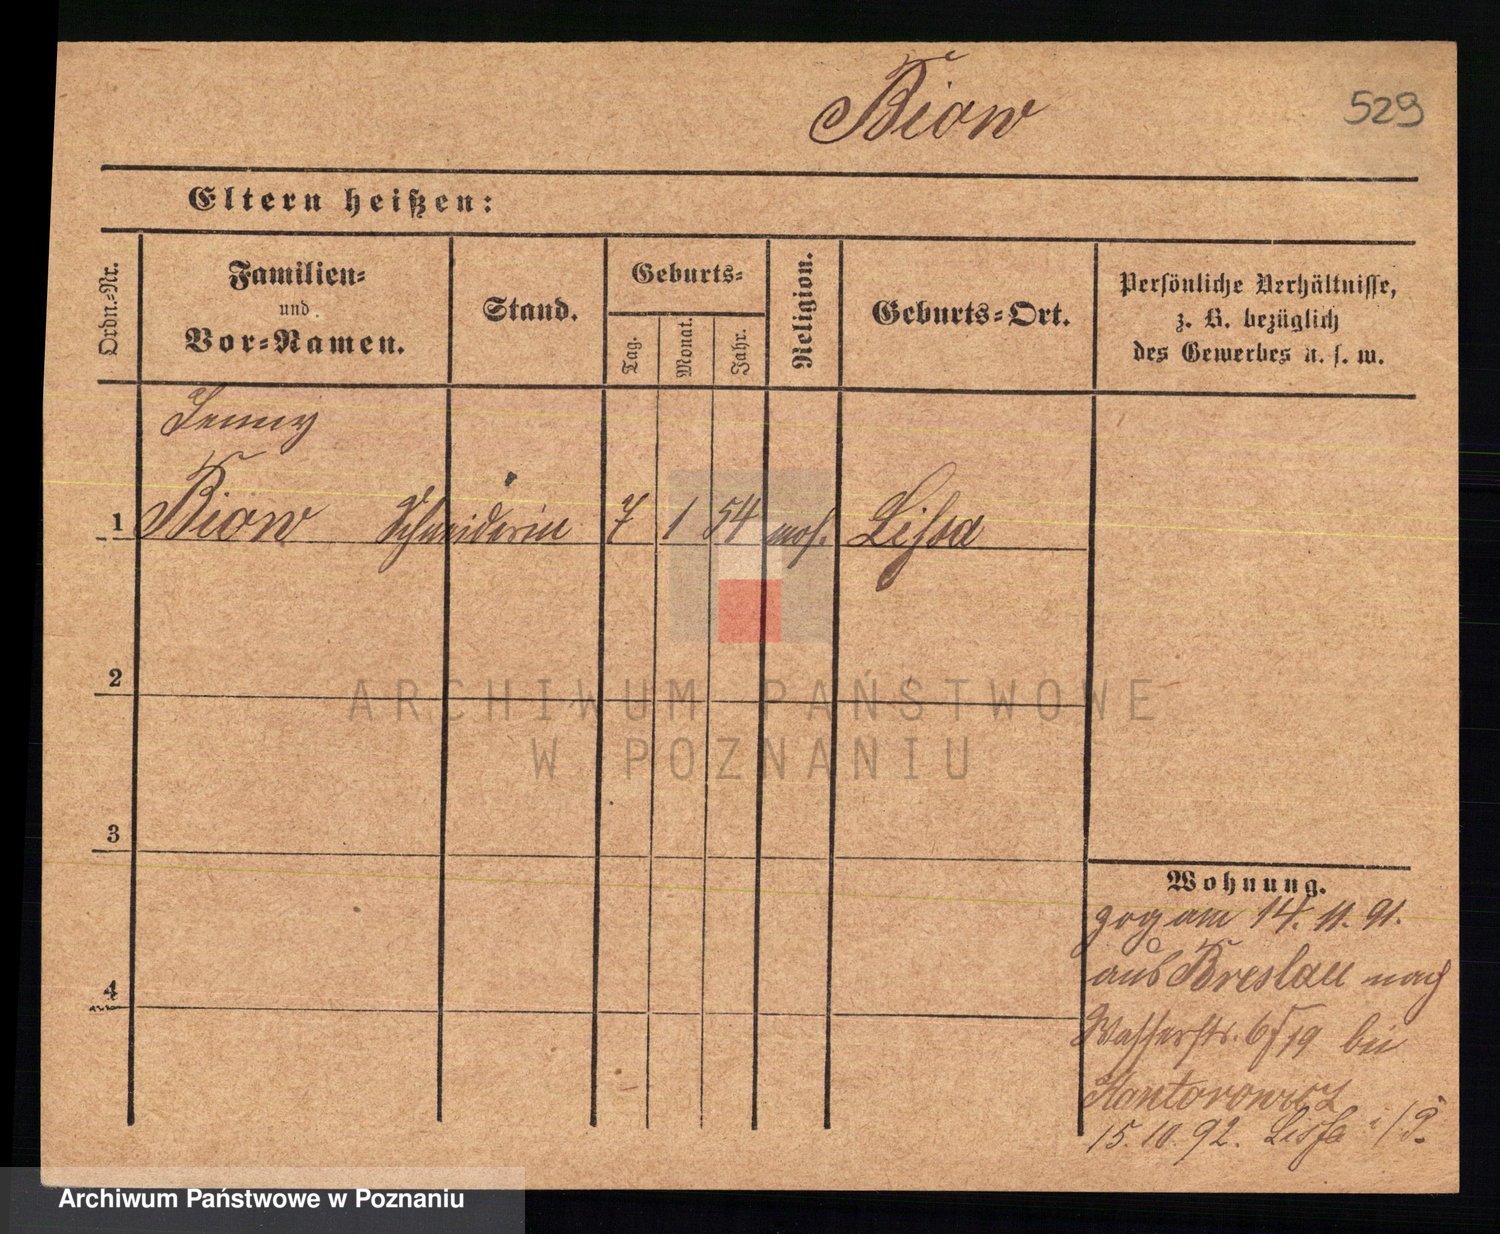 Biow
529
Eltern heißen:
Ordn.-Nr.
Familien-
und
Vor-Namen.
Stand.
Geburts-
Tag.
Monat.
Jahr.
Religion.
Geburts-Ort.
Persönliche Verhältnisse,
z. B. bezüglich
des Gewerbes u. s. w.
Jenny
1 Biow Schneiderin 7 1 54 mos. Lissa
2
3
4
Wohnung.
zog am 14. 11. 91.
aus Breslau nach
Wasserstr. 6/19 bei
Kantorowicz
15. 10. 92. Lissa i/P.
ARCHIWUM PAŃSTWOWE
W POZNANIU
Archiwum Państwowe w Poznaniu